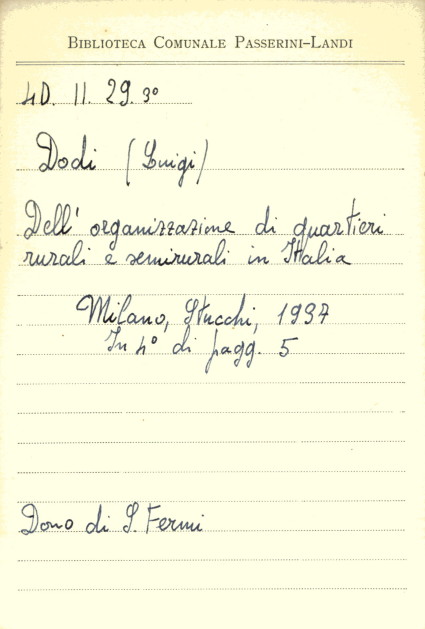 BIBLIOTECA COMUNALE PASSERINI-LANDI
4D. 11. 29. 3°
Dodi (Luigi)
Dell' organizzazione di quartieri
rurali e semirurali in Italia
Milano, Stucchi, 1937
In 4° di pagg. 5
Dono di S. Fermi